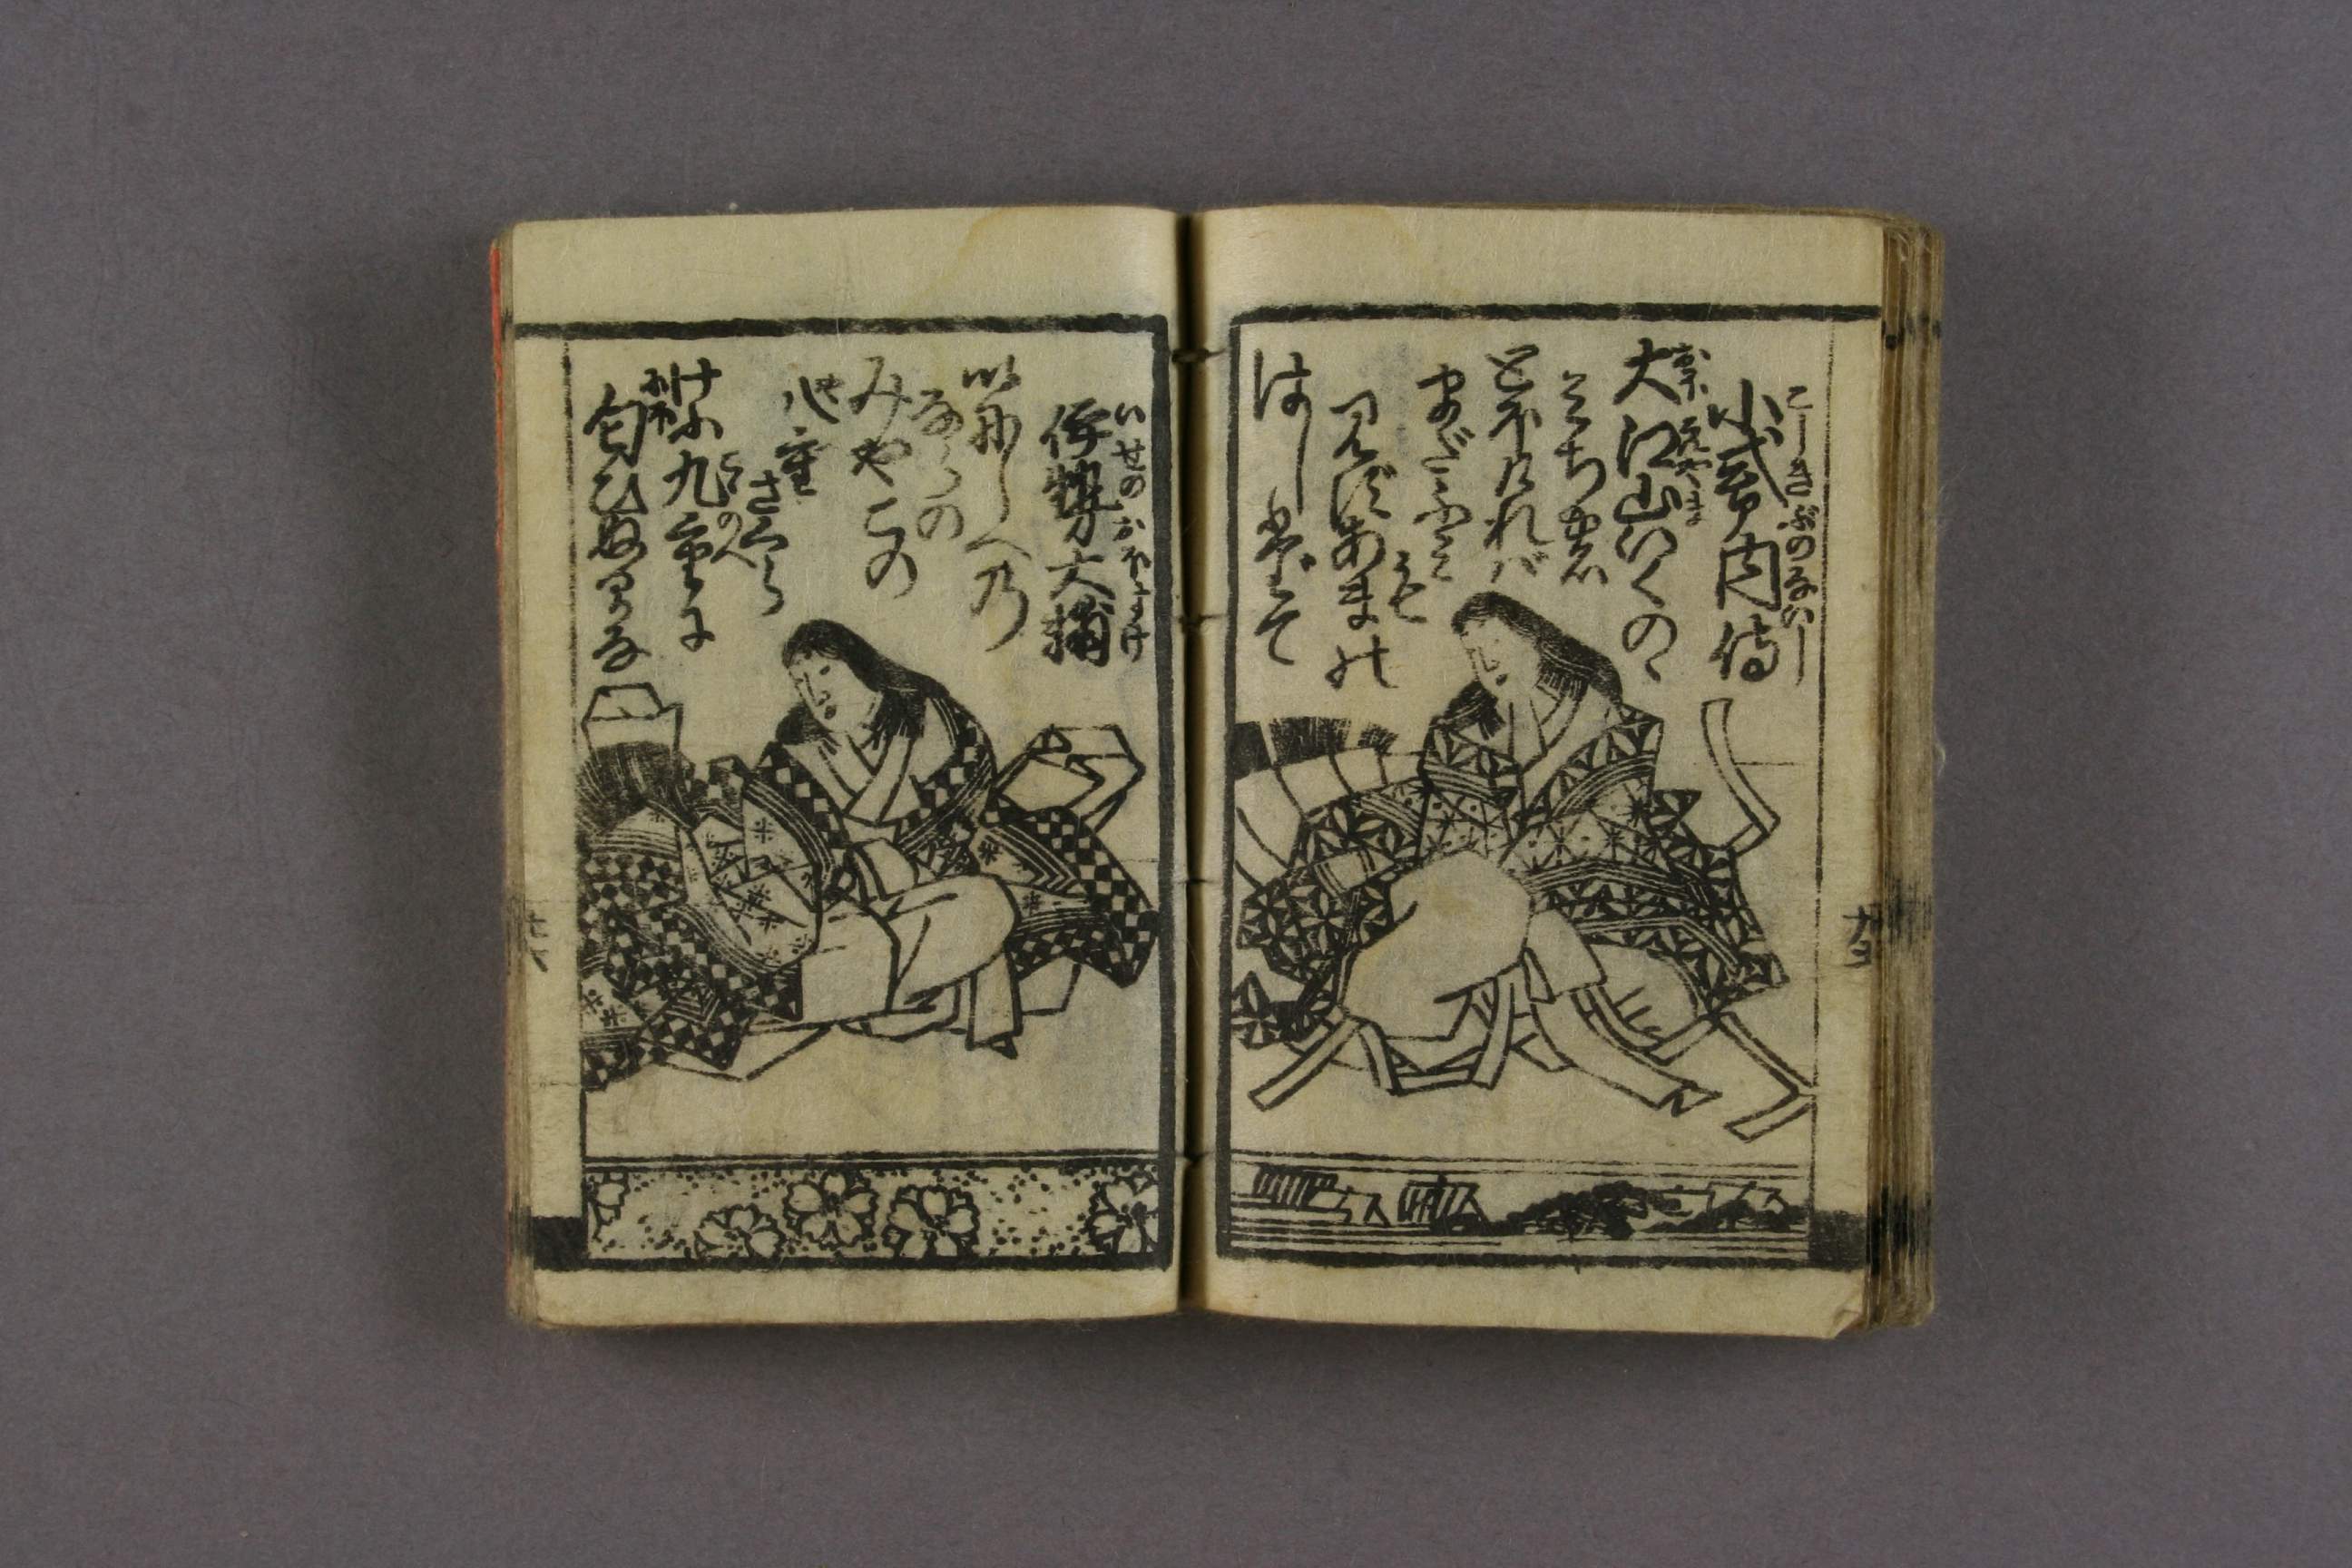 小式部内侍
こしきぶのないし
大江山いくの
おほえやま
みちの
とほけれバ
まだふミも
見ずあまの
はし立
伊勢大輔
いせのおほすけ
いにしへ乃
ならの
みやこの
八重
さくら
けふ九重に
こゝのへ
匂ひぬるかな